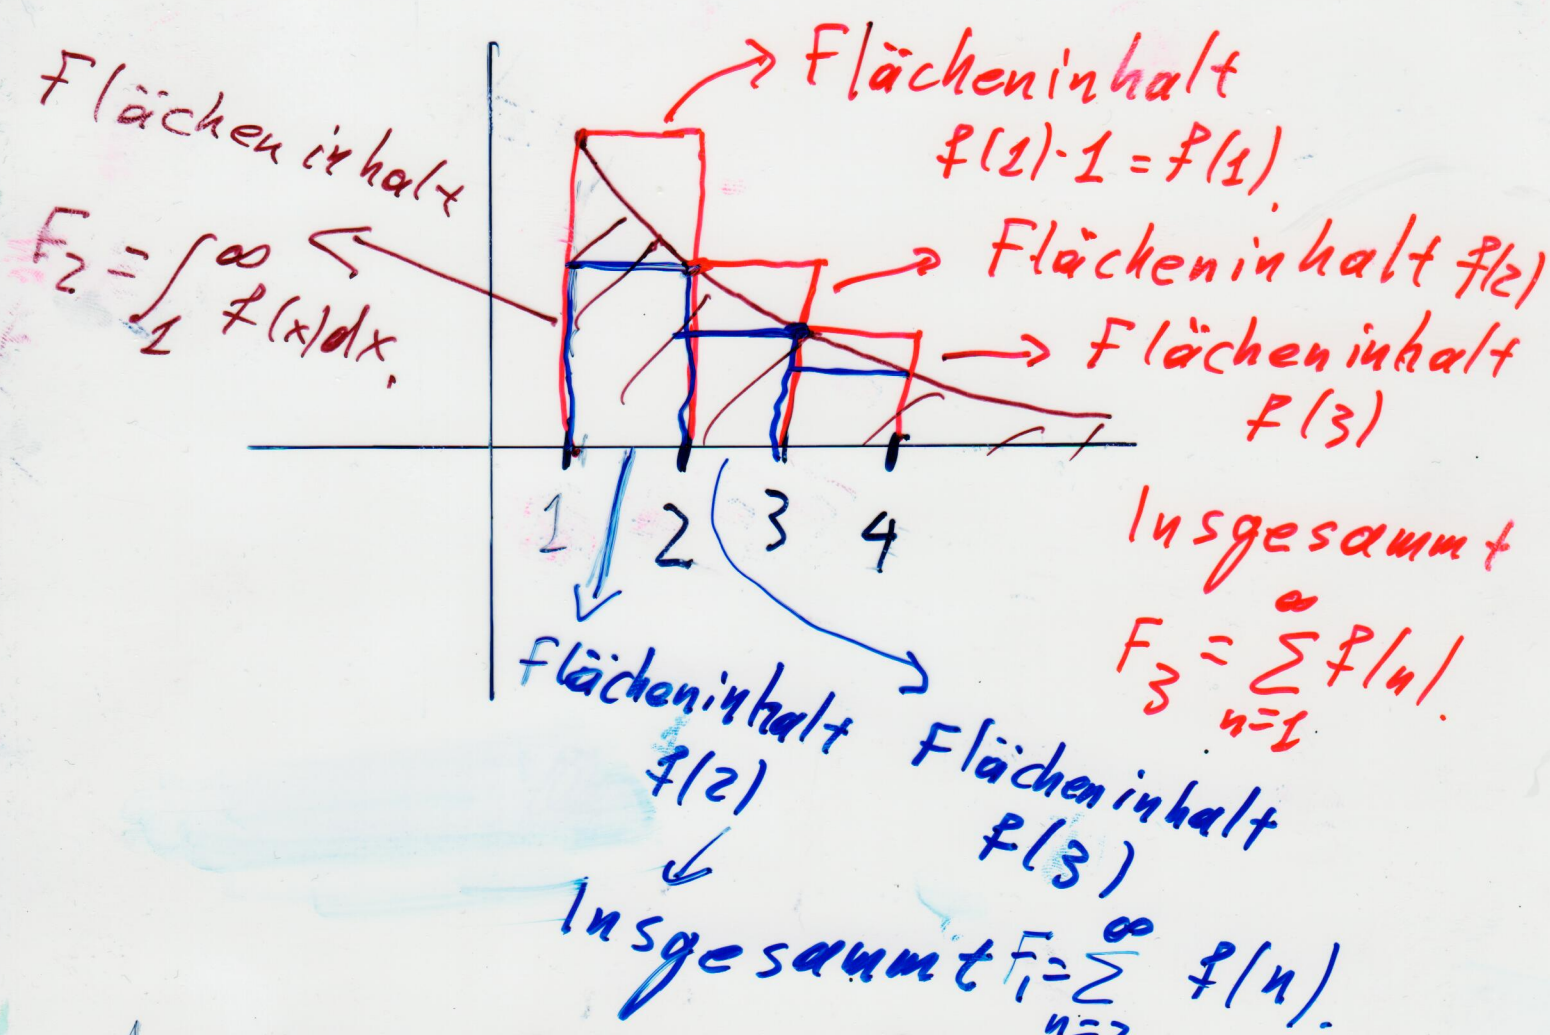 Flächeninhalt
F₂ = ∫₁^∞ f(x)dx.
Flächeninhalt
f(1)·1 = f(1).
Flächeninhalt f(2)
Flächeninhalt
f(3)
1 2 3 4
Insgesammt
F₃ = ∑_{n=1}^∞ f(n).
Flächeninhalt
f(2)
Flächeninhalt
f(3)
Insgesammt F₁ = ∑_{n=2}^∞ f(n).